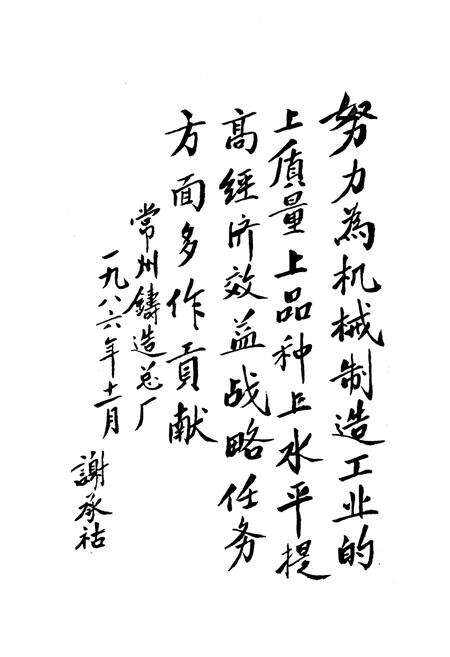 努力為机械制造工业的
上质量上品种上水平提
高经济效益战略任务
方面多作贡献
常州鑄造总厂
一九八六年十一月
謝承祜